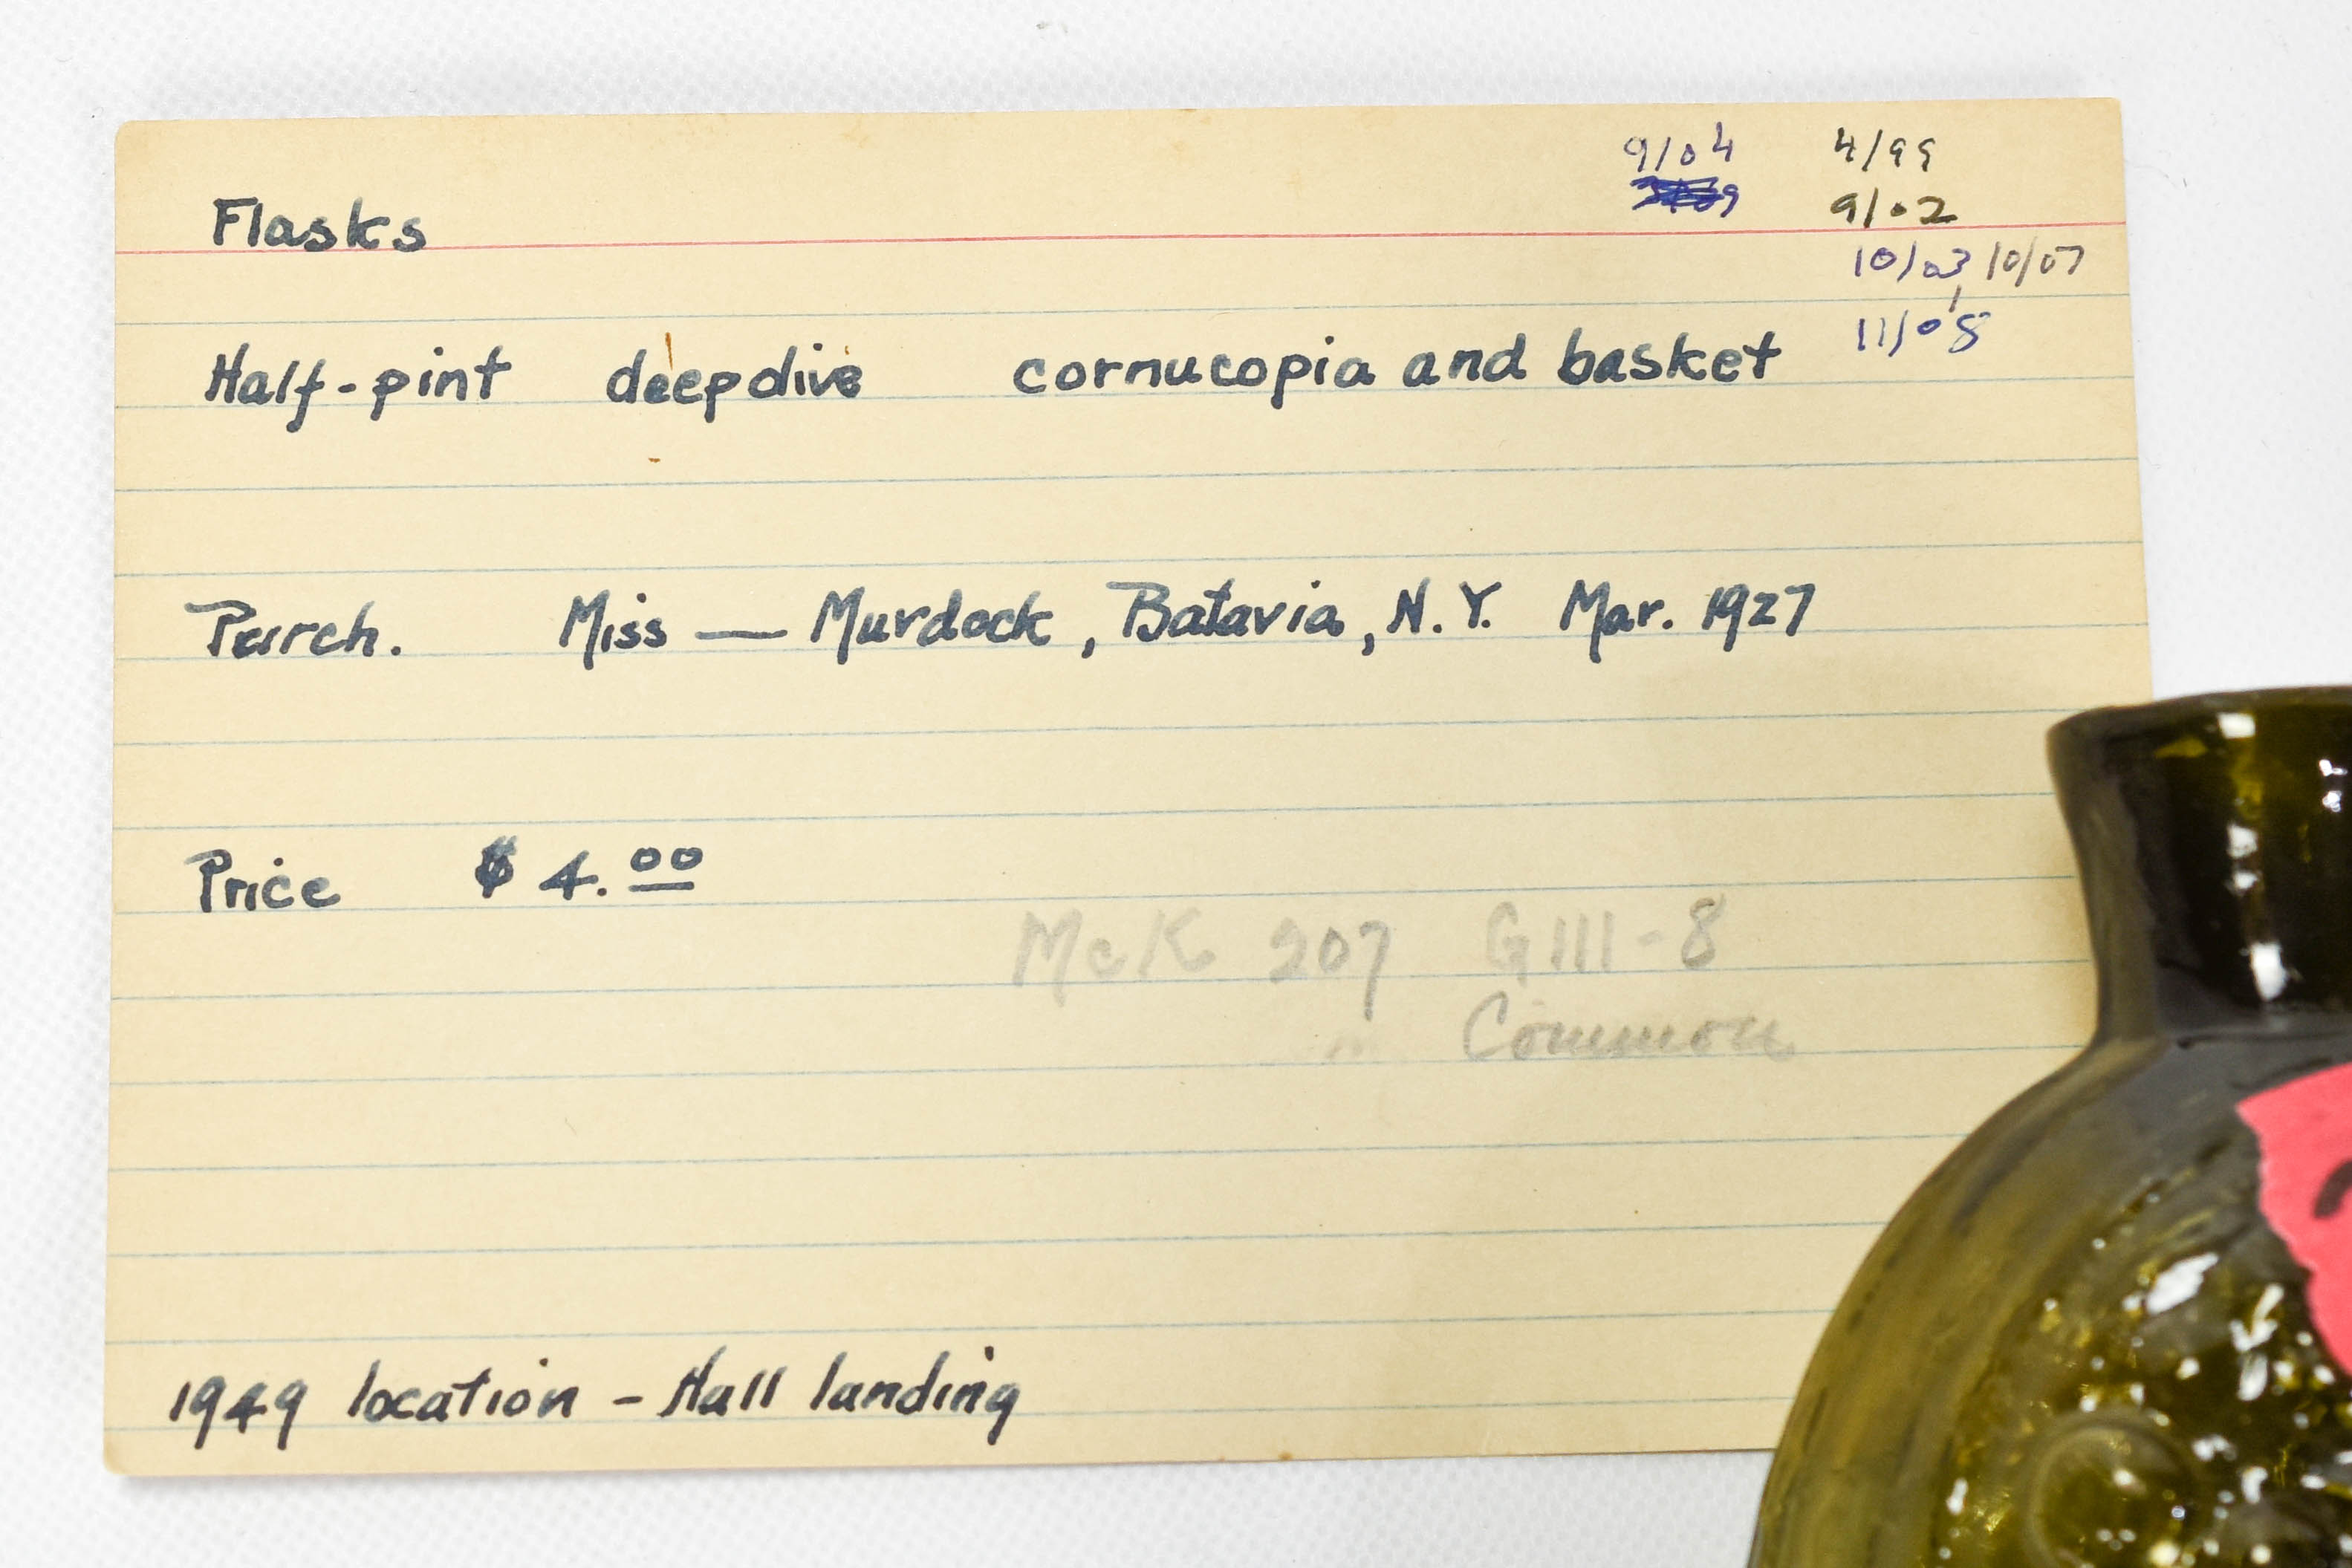 9/04 4/99
9/02
Flasks
10/03, 10/07
11/08
Half-pint deep olive cornucopia and basket
Purch. Miss — Murdock, Batavia, N.Y. Mar. 1927
Price $4.00
McK 207 GIII-8
Common
1949 location - Hall landing